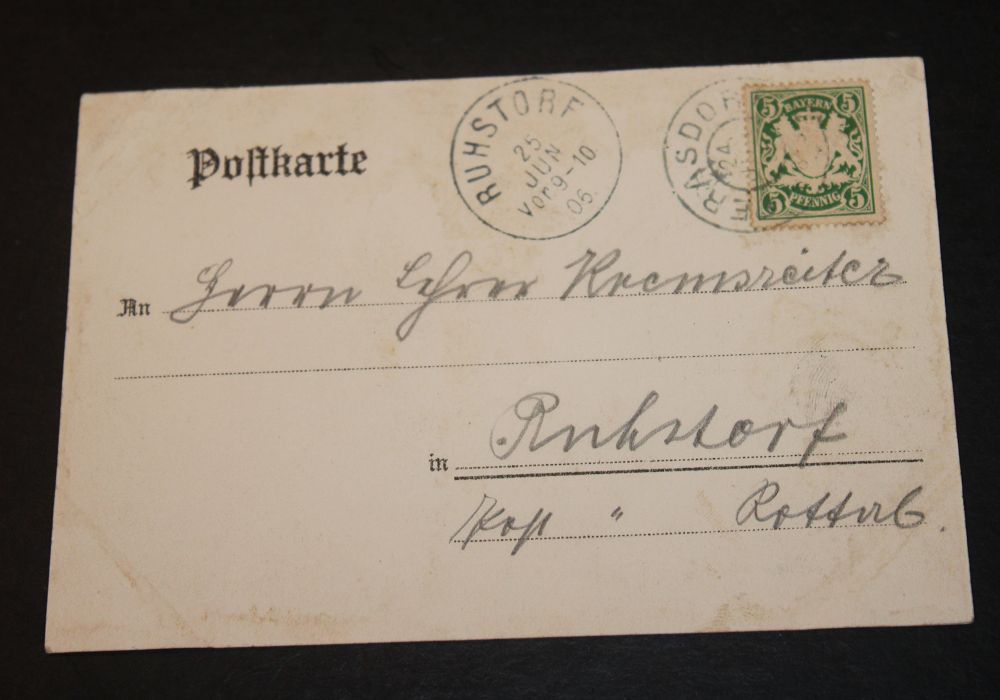 Postkarte
RUHSTORF
25
JUN
Vor.9-10
06.
24
BAYERN
5 5
5 PFENNIG 5
An Herrn Lehrer Kremsreiter
in Ruhstorf
Post " Rottal.